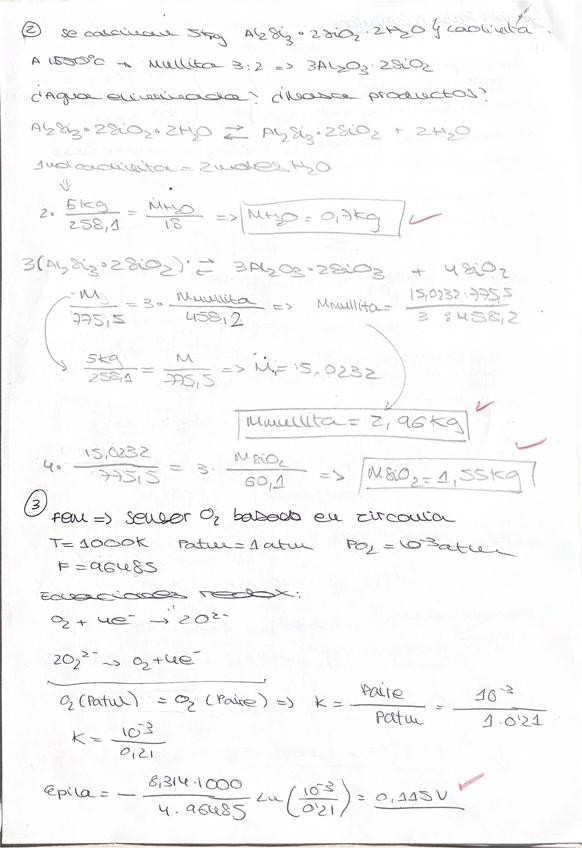 ② Se calcinan 5kg Al₂Si₃·2SiO₂·2H₂O y caolinita.
A 1550°C → Mullita 3:2 => 3Al₂O₃·2SiO₂
¿Agua eliminada? ¿Masa productos?
Al₂Si₃·2SiO₂·2H₂O ⇄ Al₂Si₃·2SiO₂ + 2H₂O
1mol caolinita = 2moles H₂O
⇓
2· 5kg/258,1 = MH₂O/18 => MH₂O = 0,7kg
3(Al₂Si₃·2SiO₂) ⇄ 3Al₂O₃·2SiO₃ + 4SiO₂
M/775,5 = 3· Mmullita/458,2 => Mmullita = 15,0232·775,5/3:458,2
5kg/258,1 = M/775,5 => M = 15,0232
Mmullita = 2,96kg
4· 15,0232/775,5 = 3· MSiO₂/60,1 => MSiO₂ = 1,55kg
③ fem => sensor O₂ basado en zirconia
T=1000K Patm=1atm PO₂=10⁻³atm
F=96485
Ecuaciones redox:
O₂ + 4e⁻ → 2O²⁻
2O₂²⁻ → O₂+4e⁻
O₂(Patm) = O₂(Paire) => K = Paire/Patm = 10⁻³/1·0'21
K = 10⁻³/0,21
Epila = - 8,314·1000/4·96485 Ln (10⁻³/0'21) = 0,115V